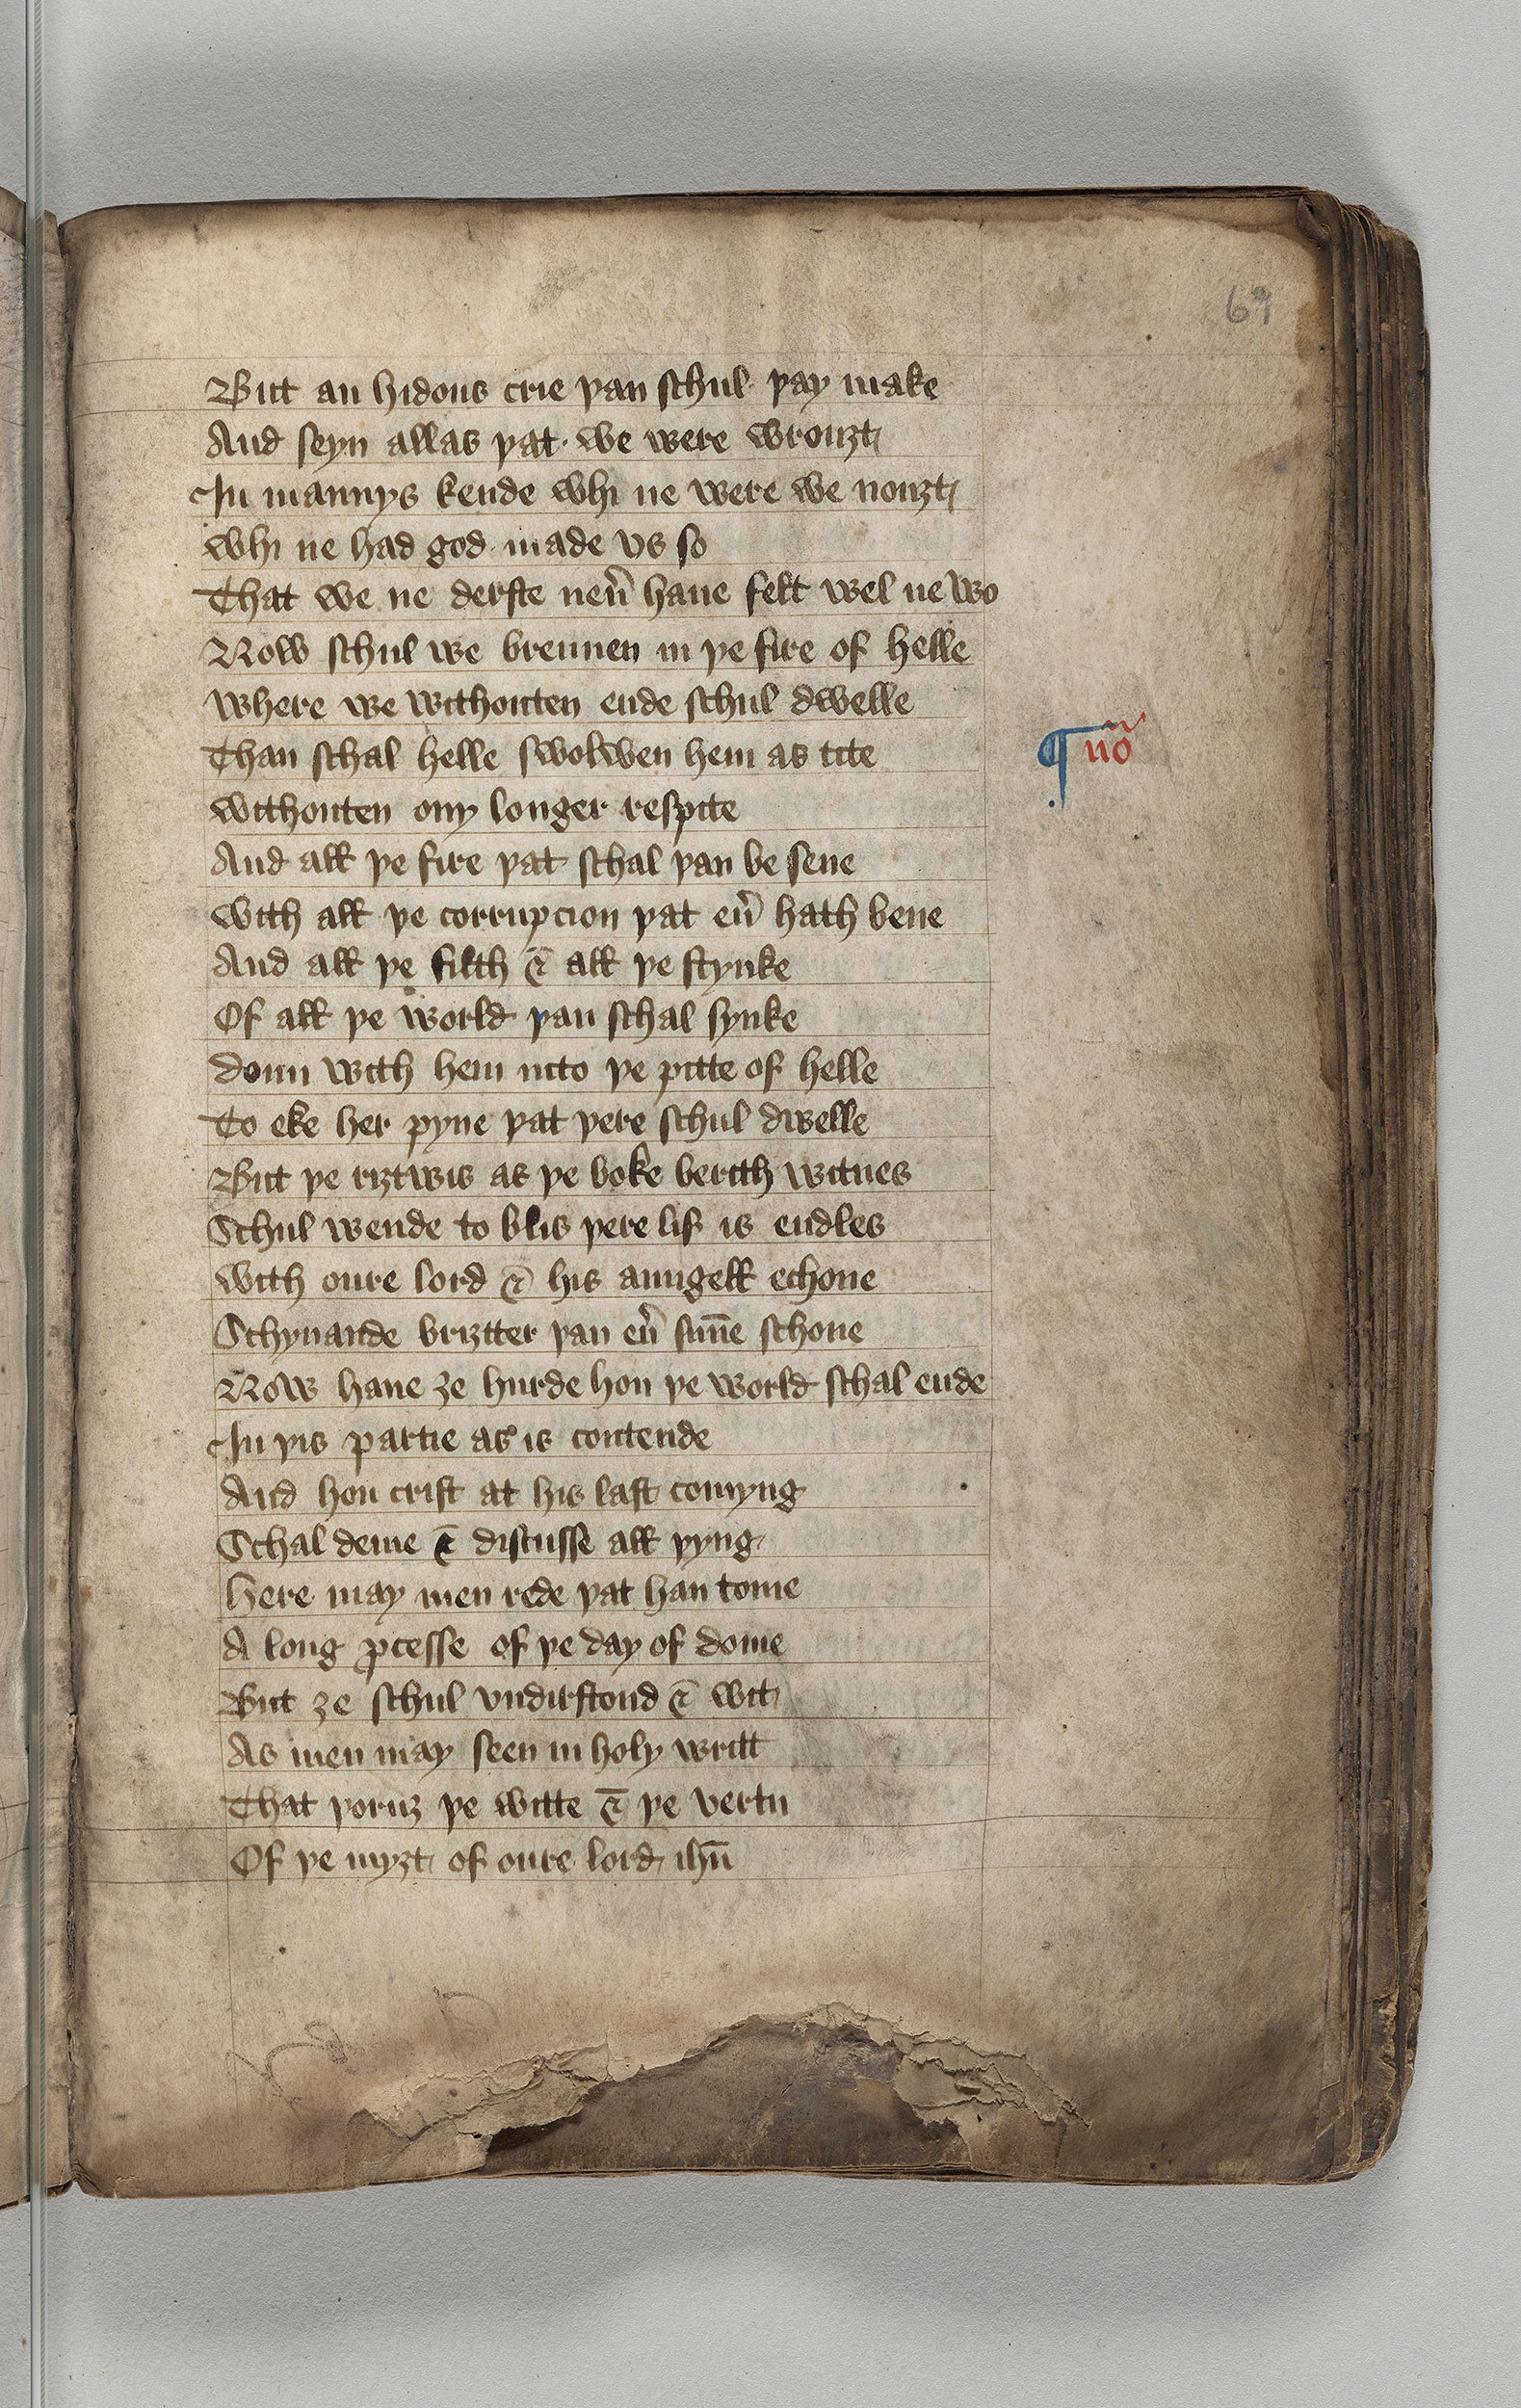 69
But an hidous crie þan schul þay make
And seyn allas þat we were wrouȝt
In mannys kende whi ne were we nouȝt
Whi ne had god made vs so
That we ne derste neu̾ haue felt wel ne wo
Now schul we brennen in þe fire of helle
Where we withouten ende schul dwelle
Than schal helle swolwen hem as tite
¶ nō
Withouten ony longer respite
And all þe fire þat schal þan be sene
With all þe corrupcion þat eu̾ hath bene
And all þe filth & all þe stynke
Of all þe world þan schal synke
Doun with hem into þe pitte of helle
To eke her pyne þat þere schul dwelle
But þe riȝtwis as þe boke berith witnes
Schul wende to blis þere lif is endles
With oure lord & his aungell echone
Schynande briȝtter þan eu̾ sun̄e schone
Now haue ȝe hurde hou þe world schal ende
In þis partie as is contende
And hou crist at his last comyng
Schal deme & discusse all þyng
Here may men rede þat han tome
A long ꝓcesse of þe day of dome
But ȝe schul vndirstond & wit
As men may seen in holy writt
That þoruȝ þe witte & þe vertu
Of þe myȝt of oure lord ihū